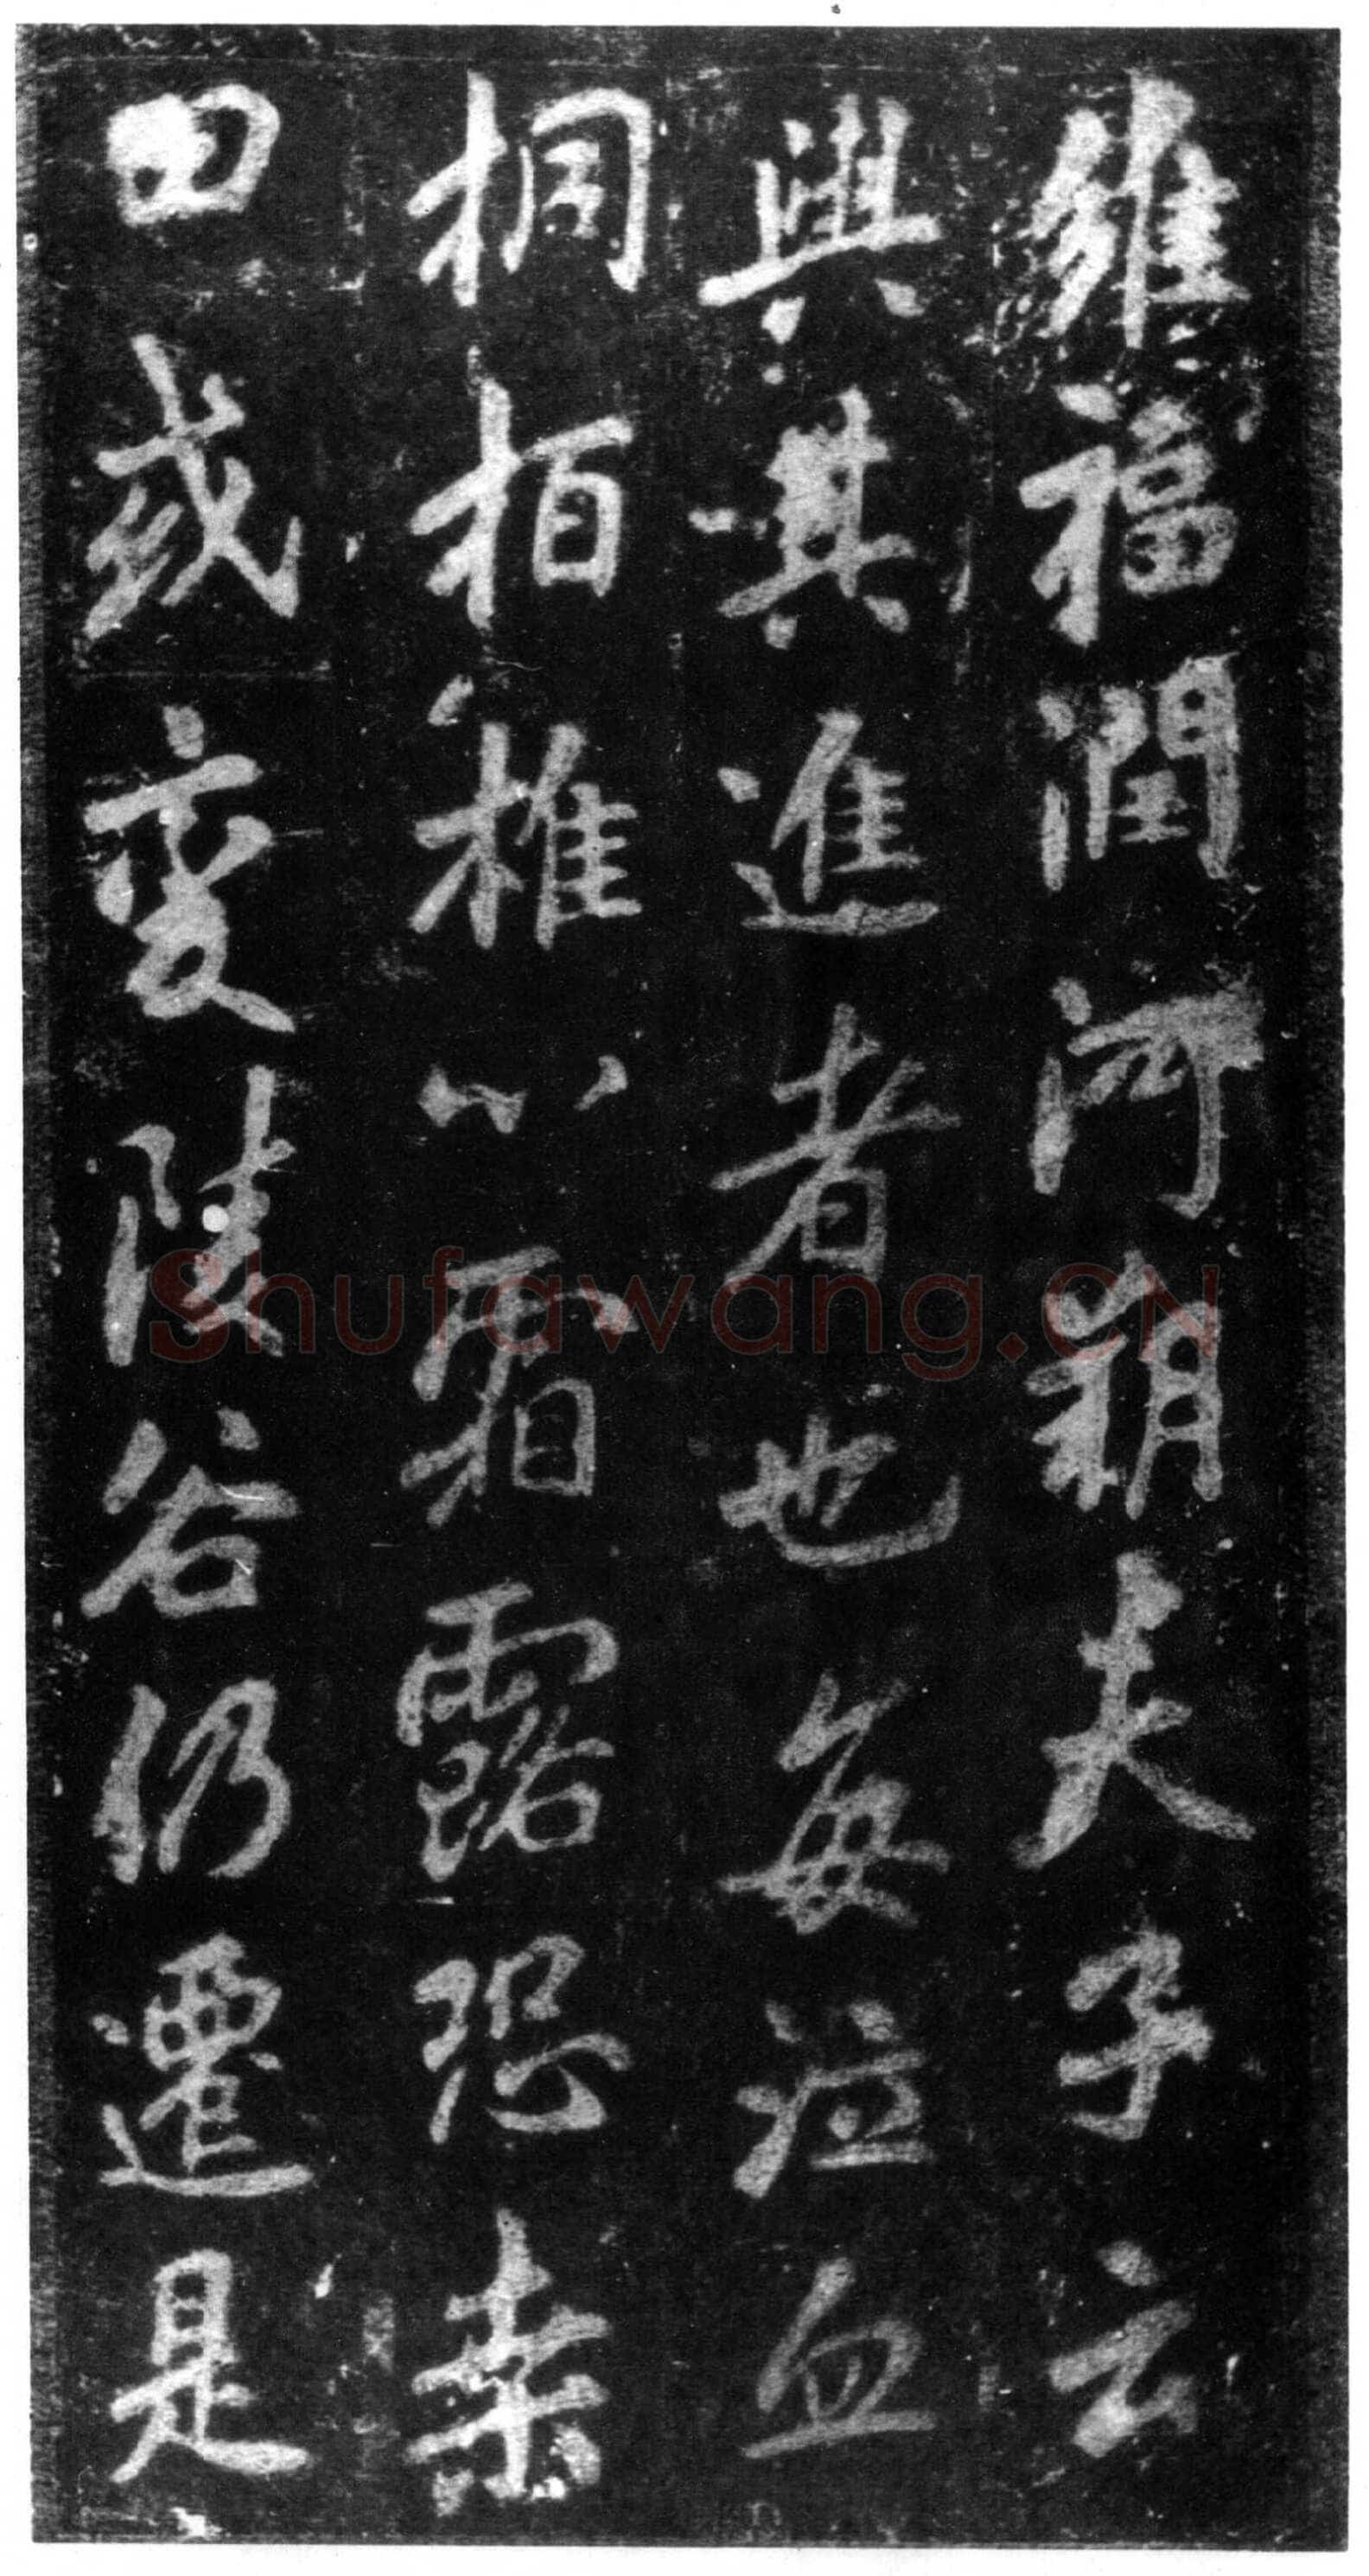 維福潤河朔夫子云
與其進者也每泣血
桐柏摧心霜露恐桑
田或變陵谷仍遷是
Shufawang.CN